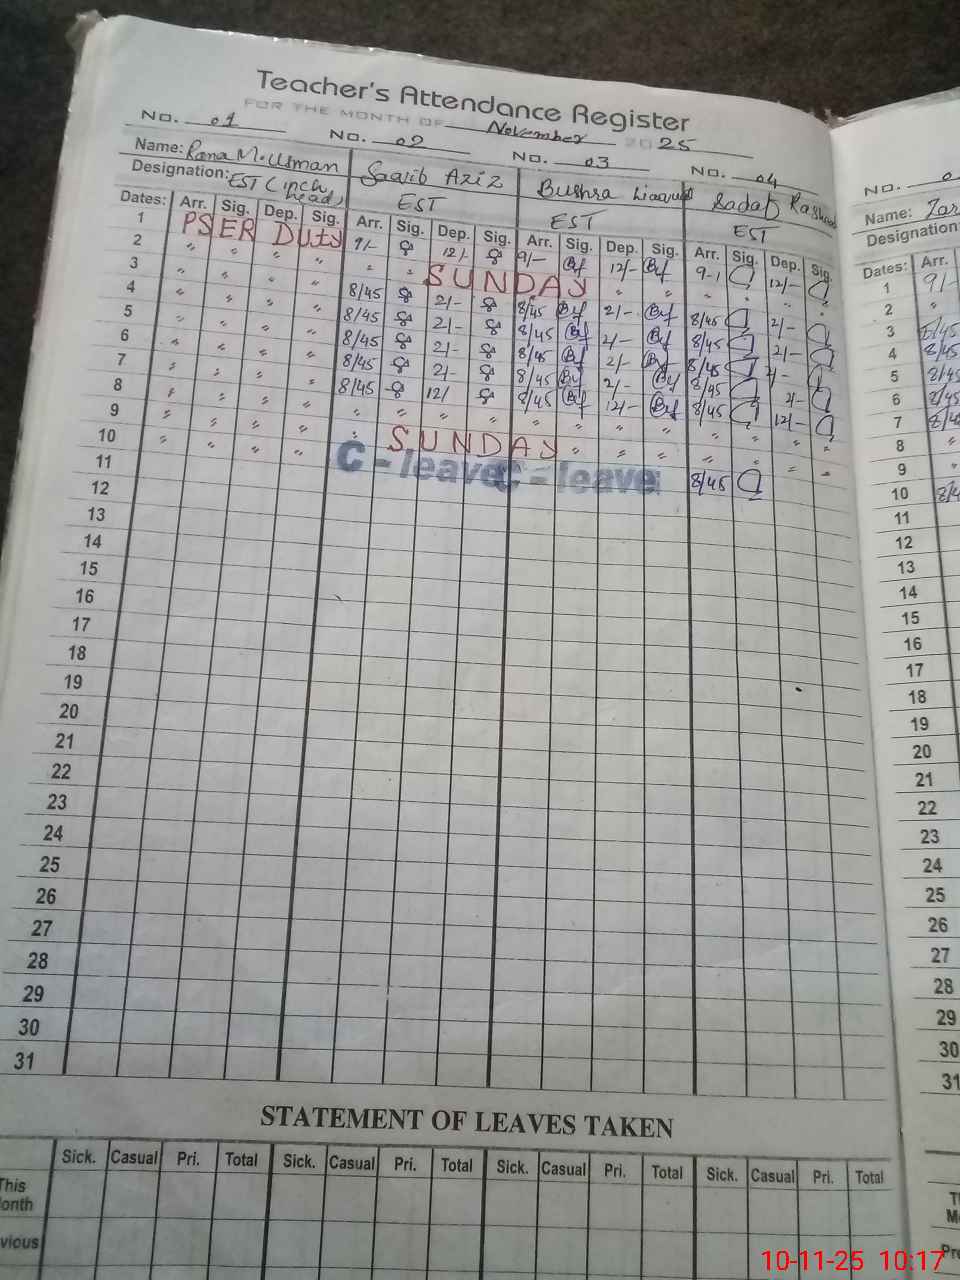 Teacher's Attendance Register
FOR THE MONTH OF November 2025
No. 01 No. 02 No. 03 No. 04
Name: Rana M. Usman Saqib Aziz Bushra Liaquat Sadaf Rasheed
Designation: EST (inch head) EST EST EST
Dates: Arr. Sig. Dep. Sig. Arr. Sig. Dep. Sig. Arr. Sig. Dep. Sig. Arr. Sig. Dep. Sig.
1 PSER Duty 9/- 12/- 9/- 12/- 9-1 12/-
2 " " " " " " SUNDAY " " " " " "
3 " " " " 8/45 2/- 8/45 2/- 8/45 2/-
4 " " " " 8/45 2/- 8/45 2/- 8/45 2/-
5 " " " " 8/45 2/- 8/45 2/- 8/45 2/-
6 " " " " 8/45 2/- 8/45 2/- 8/45 2/-
7 " " " " 8/45 12/ 8/45 12/- 8/45 12/-
8 " " " " " " " " " " " " " " " "
9 " " " " " SUNDAY " " " " " " "
10 " " " " C - leave C - leave 8/45
11
12
13
14
15
16
17
18
19
20
21
22
23
24
25
26
27
28
29
30
31
STATEMENT OF LEAVES TAKEN
Sick. Casual Pri. Total Sick. Casual Pri. Total Sick. Casual Pri. Total Sick. Casual Pri. Total
This
Month
vious
No.
Name:
Designation:
Dates: Arr.
1 9/-
2 "
3 8/45
4 8/45
5 8/45
6 8/45
7 8/45
8 "
9 "
10 8/4
11
12
13
14
15
16
17
18
19
20
21
22
23
24
25
26
27
28
29
30
31
10-11-25 10:17